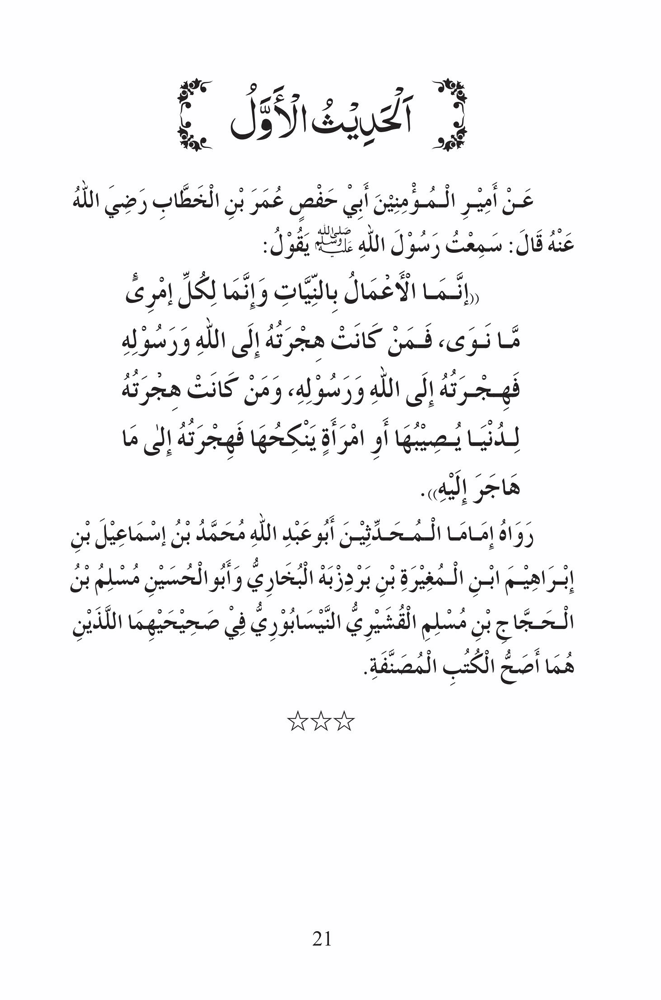 اَلْحَدِيْثُ الْأَوَّلُ
عَنْ أَمِيْرِ الْمُؤْمِنِيْنَ أَبِيْ حَفْصٍ عُمَرَ بْنِ الْخَطَّابِ رَضِيَ اللهُ
عَنْهُ قَالَ: سَمِعْتُ رَسُوْلَ اللهِ ﷺ يَقُوْلُ:
((إنَّمَا الْأَعْمَالُ بِالنِّيَّاتِ وَإِنَّمَا لِكُلِّ إمْرِئٍ
مَّا نَوَى، فَمَنْ كَانَتْ هِجْرَتُهُ إِلَى اللهِ وَرَسُوْلِهِ
فَهِجْرَتُهُ إِلَى اللهِ وَرَسُوْلِهِ، وَمَنْ كَانَتْ هِجْرَتُهُ
لِدُنْيَا يُصِيْبُهَا أَوِ امْرَأَةٍ يَنْكِحُهَا فَهِجْرَتُهُ إِلٰى مَا
هَاجَرَ إِلَيْهِ)).
رَوَاهُ إِمَامَا الْمُحَدِّثِيْنَ أَبُو عَبْدِ اللهِ مُحَمَّدُ بْنُ إسْمَاعِيْلَ بْنِ
إِبْرَاهِيْمَ ابْنِ الْمُغِيْرَةِ بْنِ بَرْدِزْبَهْ الْبُخَارِيُّ وَأَبُو الْحُسَيْنِ مُسْلِمُ بْنُ
الْحَجَّاجِ بْنِ مُسْلِمِ الْقُشَيْرِيُّ النَّيْسَابُوْرِيُّ فِيْ صَحِيْحَيْهِمَا اللَّذَيْنِ
هُمَا أَصَحُّ الْكُتُبِ الْمُصَنَّفَةِ.
☆☆☆
21